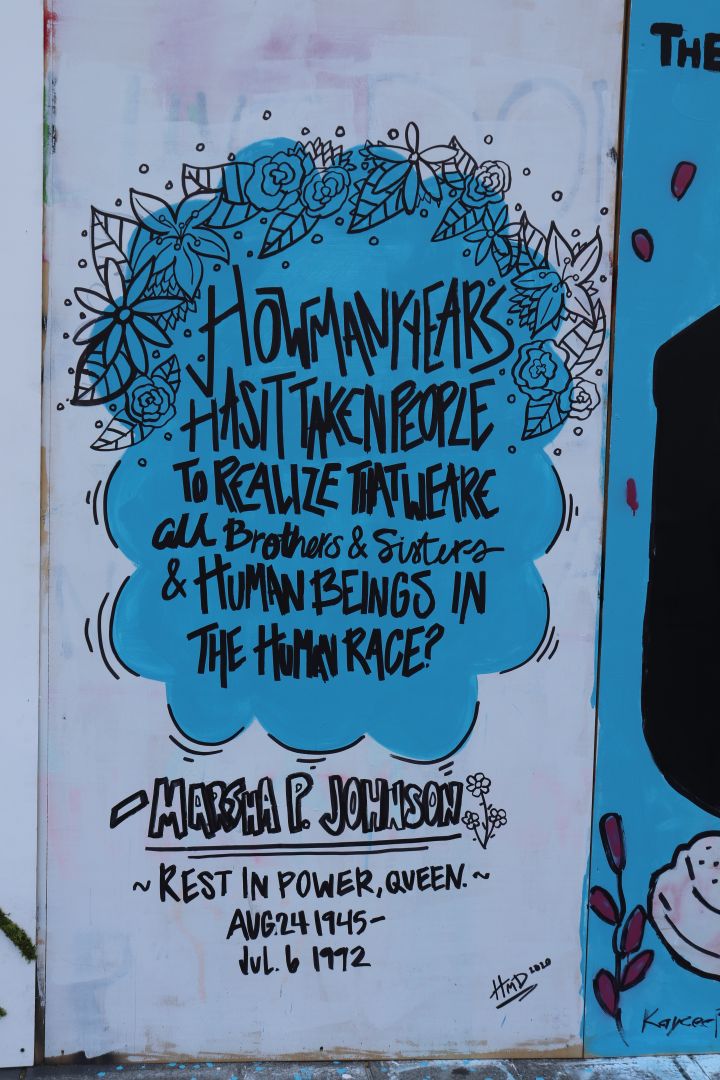 THE
HOW MANY YEARS
HAS IT TAKEN PEOPLE
TO REALIZE THAT WE ARE
all Brothers & Sisters
& HUMAN BEINGS IN
THE HUMAN RACE?
- MARSHA P. JOHNSON
~ REST IN POWER, QUEEN. ~
AUG. 24 1945-
JUL. 6 1992
HMD 2020